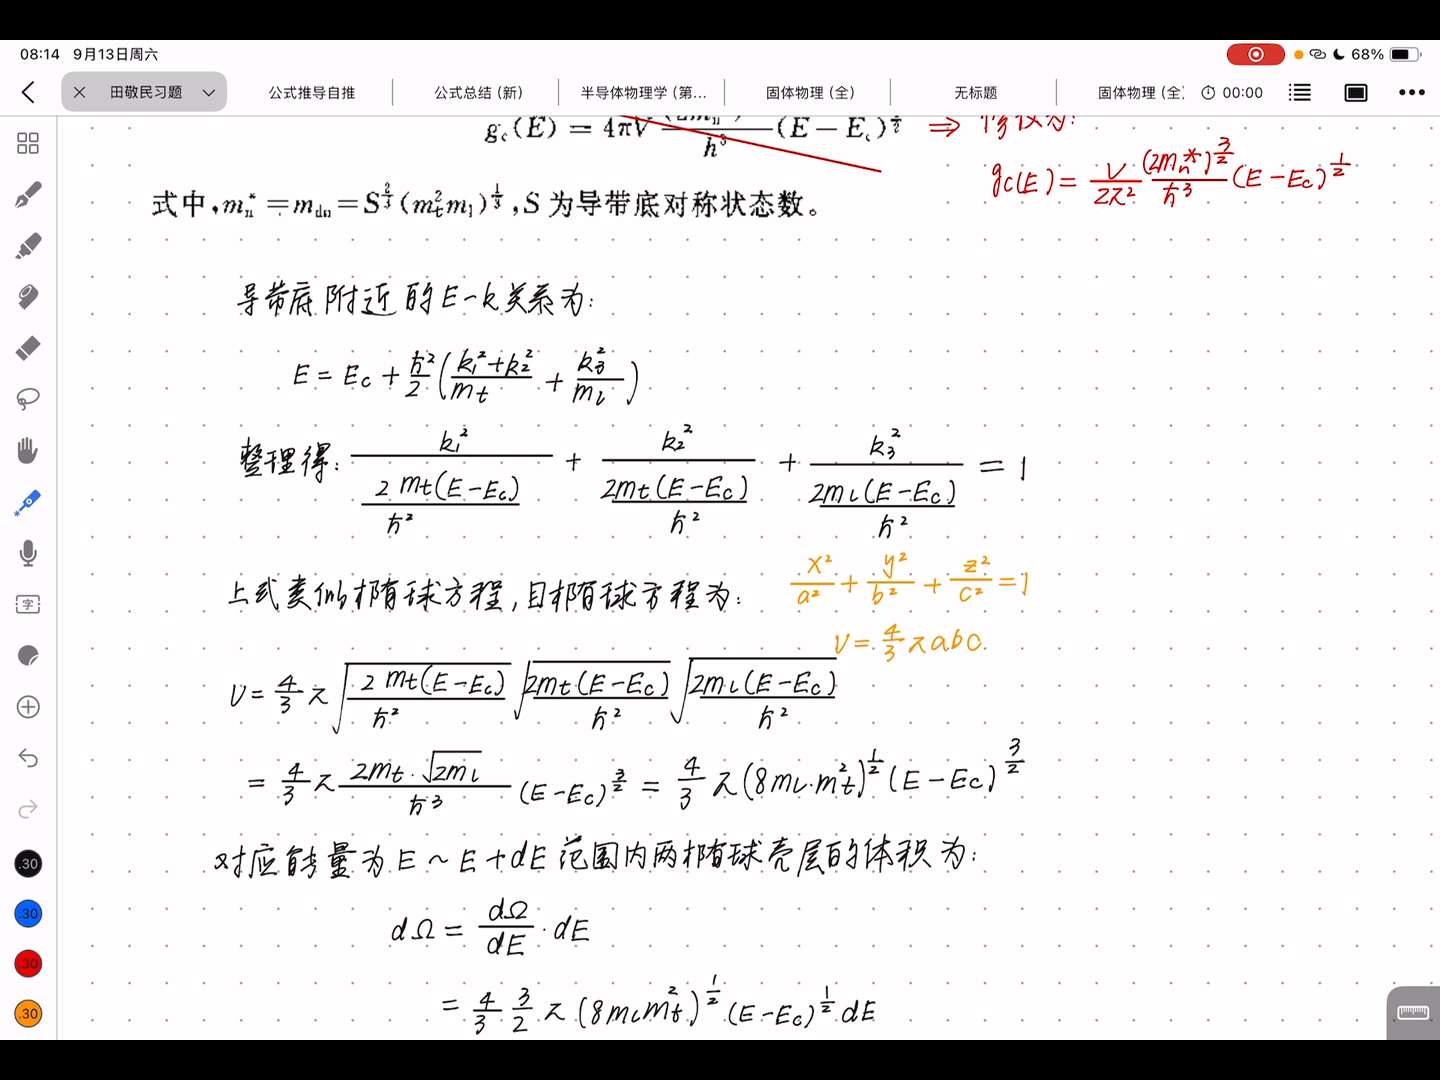 08:14 9月13日周六 68%
田敬民习题 公式推导自推 公式总结 (新) 半导体物理学 (第... 固体物理 (全) 无标题 固体物理 (全) 00:00
g_c(E) = 4πV (2m_n*)/h³ (E−E_c)^{1/2} ⇒ 修改为:
g_c(E) = V/2π² (2m_n*)^{3/2}/ħ³ (E−Ec)^{1/2}
式中,m_n* = m_dn = S^{2/3}(m_t²m_l)^{1/3},S 为导带底对称状态数。
导带底附近的E-k关系为:
E = Ec + ħ²/2 ((k₁²+k₂²)/mt + k₃²/ml)
整理得: k₁²/(2mt(E−Ec)/ħ²) + k₂²/(2mt(E−Ec)/ħ²) + k₃²/(2ml(E−Ec)/ħ²) = 1
x²/a² + y²/b² + z²/c² = 1
上式类似椭球方程,且椭球方程为:
V = 4/3 πabc
V = 4/3 π √(2mt(E−Ec)/ħ²) √(2mt(E−Ec)/ħ²) √(2ml(E−Ec)/ħ²)
= 4/3 π 2mt·√2ml/ħ³ (E−Ec)^{3/2} = 4/3 π (8ml·mt²)^{1/2} (E−Ec)^{3/2}
对应能量为E~E+dE范围内两椭球壳层的体积为:
dΩ = dΩ/dE · dE
= 4/3 3/2 π (8mlmt²)^{1/2} (E−Ec)^{1/2} dE
字
.30
.30
.30
.30